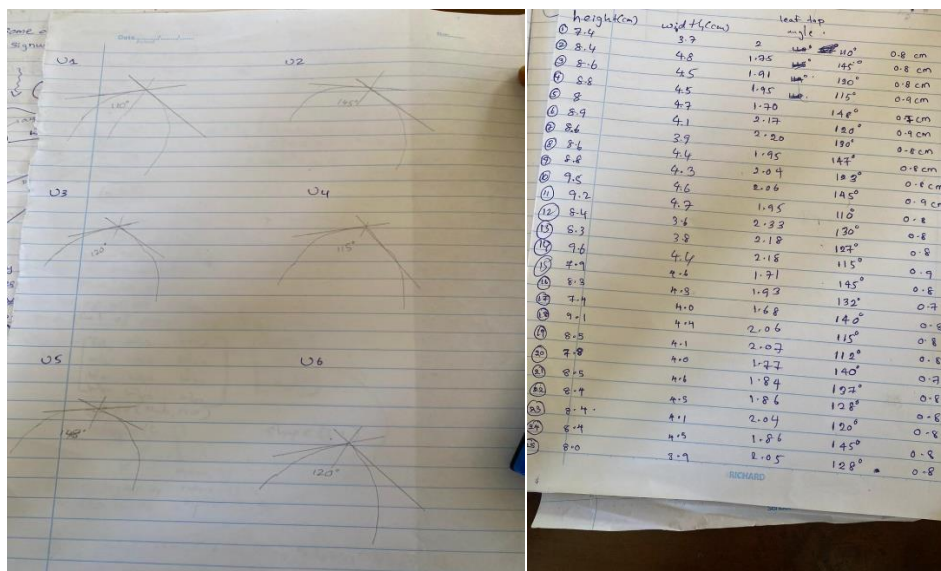 U1 U2
110° 145°
U3 U4
120° 115°
U5 U6
148° 120°
height(cm) width(cm) leaf top angle
1 7.4 3.7 2 110° 0.8 cm
2 8.4 4.8 1.75 145° 0.8 cm
3 8.6 4.5 1.91 120° 0.8 cm
4 8.8 4.5 1.95 115° 0.9 cm
5 8 4.7 1.70 148° 0.7 cm
6 8.9 4.1 2.17 120° 0.9 cm
7 8.6 3.9 2.20 130° 0.8 cm
8 8.6 4.4 1.95 147° 0.8 cm
9 8.8 4.3 2.04 123° 0.8 cm
10 9.5 4.6 2.06 145° 0.9 cm
11 9.2 4.7 1.95 110° 0.8
12 8.4 3.6 2.33 130° 0.8
13 8.3 3.8 2.18 127° 0.8
14 9.6 4.4 2.18 115° 0.9
15 7.9 4.6 1.71 145° 0.8
16 8.3 4.3 1.93 132° 0.7
17 7.4 4.0 1.68 140° 0.8
18 9.1 4.4 2.06 115° 0.8
19 8.5 4.1 2.07 112° 0.8
20 7.8 4.0 1.77 140° 0.7
21 8.5 4.6 1.84 127° 0.8
22 8.4 4.5 1.86 128° 0.8
23 8.4 4.1 2.04 120° 0.8
24 8.4 4.5 1.86 145° 0.8
25 8.0 3.9 2.05 128° 0.8
RICHARD